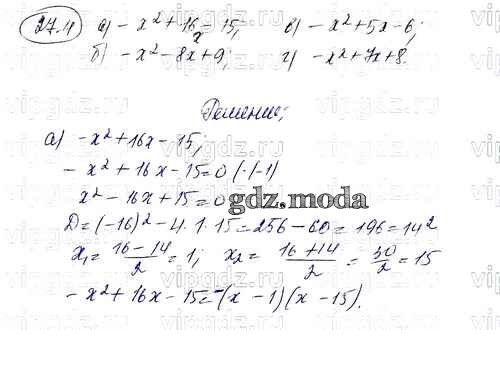 27.4 а) -x² + 16x - 15; в) -x² + 5x - 6;
б) -x² - 8x + 9; г) -x² + 7x + 8.
Решение:
а) -x² + 16x - 15;
-x² + 16x - 15 = 0 (·(-1)
x² - 16x + 15 = 0
gdz.moda
D = (-16)² - 4·1·15 = 256 - 60 = 196 = 14²
x₁ = (16 - 14)/2 = 1; x₂ = (16 + 14)/2 = 30/2 = 15
-x² + 16x - 15 = -(x - 1)(x - 15).
vipgdz.ru